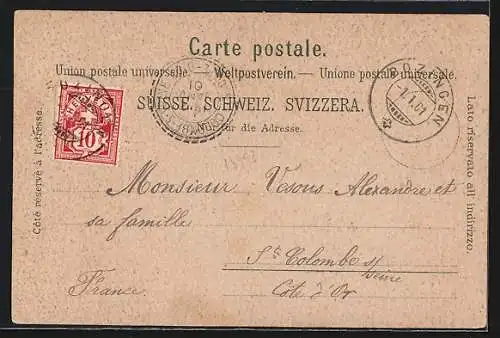 Carte postale.
Union postale universelle. — Weltpostverein. — Unione postale universale.
SUISSE. SCHWEIZ. SVIZZERA.
für die Adresse.
Côté réservé à l'adresse.
Lato riservato all indirizzo.
HELVETIA
10
BÖZINGEN
-1.I.01
Monsieur Vesous Alexandre et
sa famille
Ste Colombe s/
seine
France.
Cote d'Or